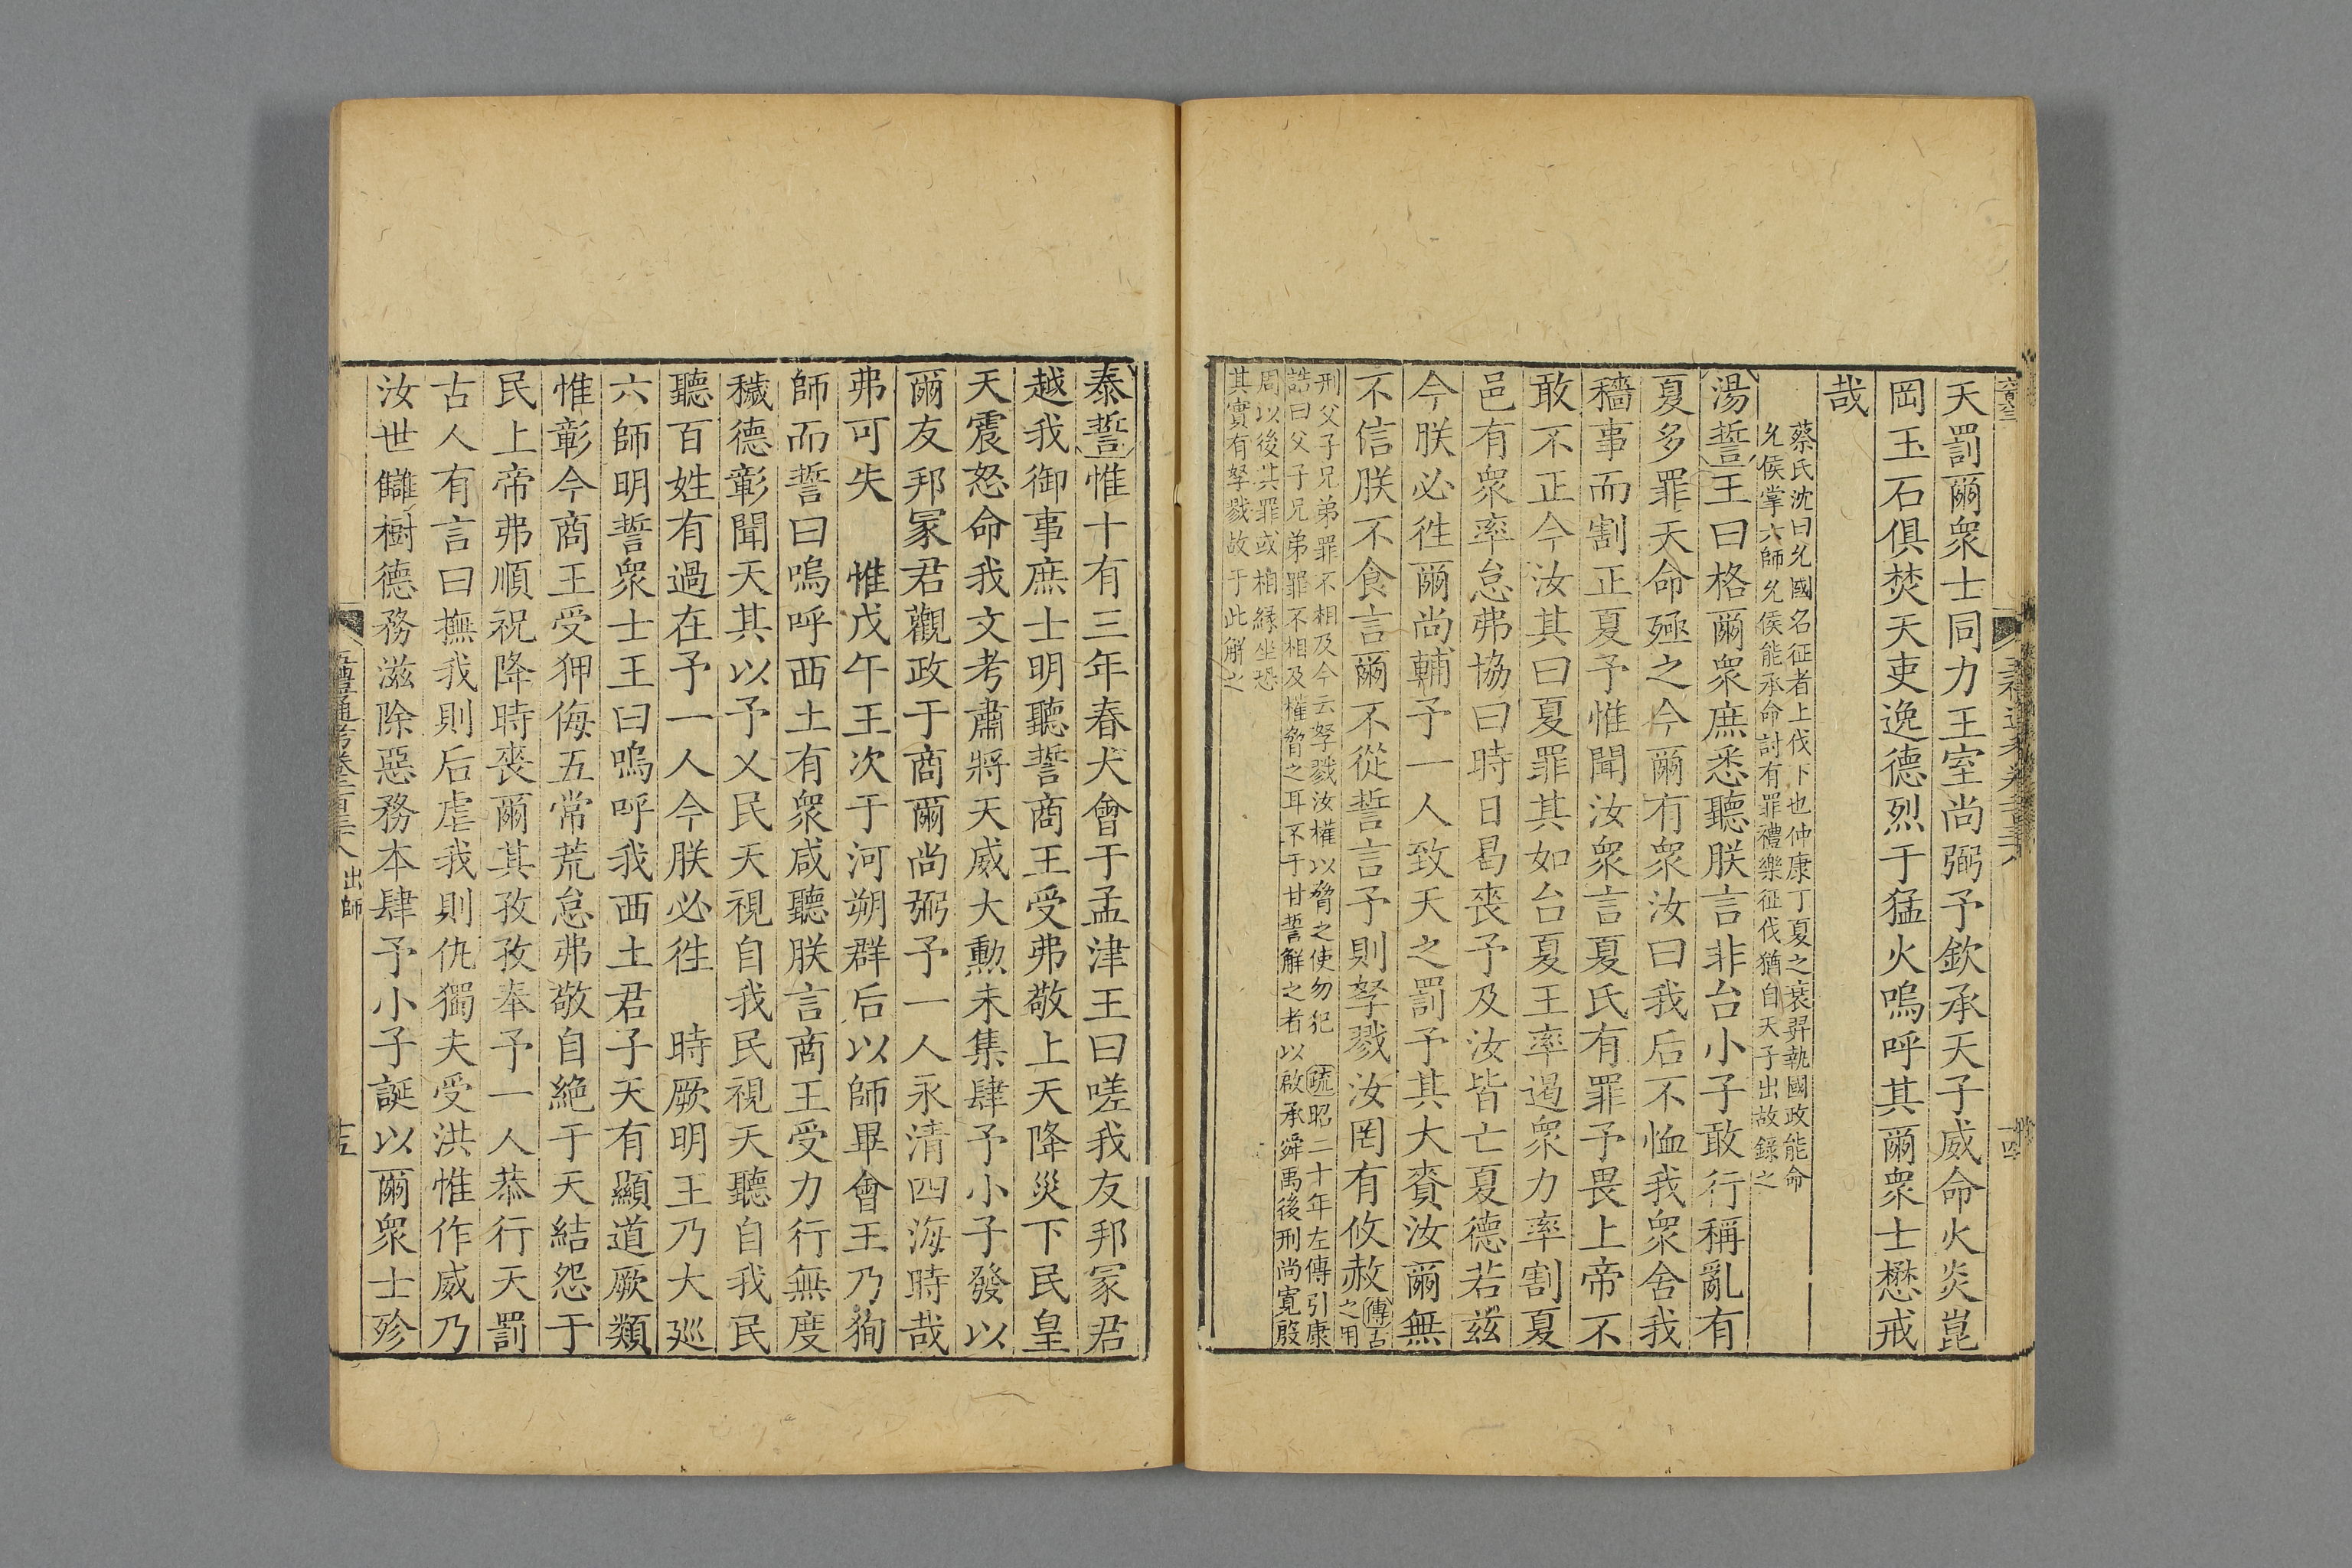 天罰爾衆士同力王室尚弼予欽承天子威命火炎崑
岡玉石俱焚天吏逸德烈于猛火嗚呼其爾衆士懋戒
哉
蔡氏沈曰允國名征者上伐下也仲康丁夏之衰羿執國政能命
允侯掌六師允侯能承命討有罪禮樂征伐猶自天子出故錄之
湯誓王曰格爾衆庶悉聽朕言非台小子敢行稱亂有
夏多罪天命殛之今爾有衆汝曰我后不恤我衆舍我
穡事而割正夏予惟聞汝衆言夏氏有罪予畏上帝不
敢不正今汝其曰夏罪其如台夏王率遏衆力率割夏
邑有衆率怠弗協曰時日曷喪予及汝皆亡夏德若茲
今朕必徃爾尚輔予一人致天之罰予其大賚汝爾無
不信朕不食言爾不從誓言予則孥戮汝罔有攸赦
傳古
之用
刑父子兄弟罪不相及今云孥戮汝權以脅之使勿犯 疏昭二十年左傳引康
誥曰父子兄弟罪不相及權脅之耳不于甘誓解之者以啟承舜禹後刑尚寬殷
周以後其罪或相緣坐恐
其實有孥戮故于此解之
泰誓惟十有三年春大會于孟津王曰嗟我友邦冢君
越我御事庶士明聽誓商王受弗敬上天降災下民皇
天震怒命我文考肅將天威大勲未集肆予小子發以
爾友邦冢君觀政于商爾尚弼予一人永清四海時哉
弗可失 惟戊午王次于河朔群后以師畢會王乃狥
師而誓曰嗚呼西土有衆咸聽朕言商王受力行無度
穢德彰聞天其以予乂民天視自我民視天聽自我民
聽百姓有過在予一人今朕必徃 時厥明王乃大巡
六師明誓衆士王曰嗚呼我西土君子天有顯道厥類
惟彰今商王受狎侮五常荒怠弗敬自絶于天結怨于
民上帝弗順祝降時喪爾其孜孜奉予一人恭行天罰
古人有言曰撫我則后虐我則仇獨夫受洪惟作威乃
汝世讎樹德務滋除惡務本肆予小子誕以爾衆士殄
五禮通考卷二百三十八 出師